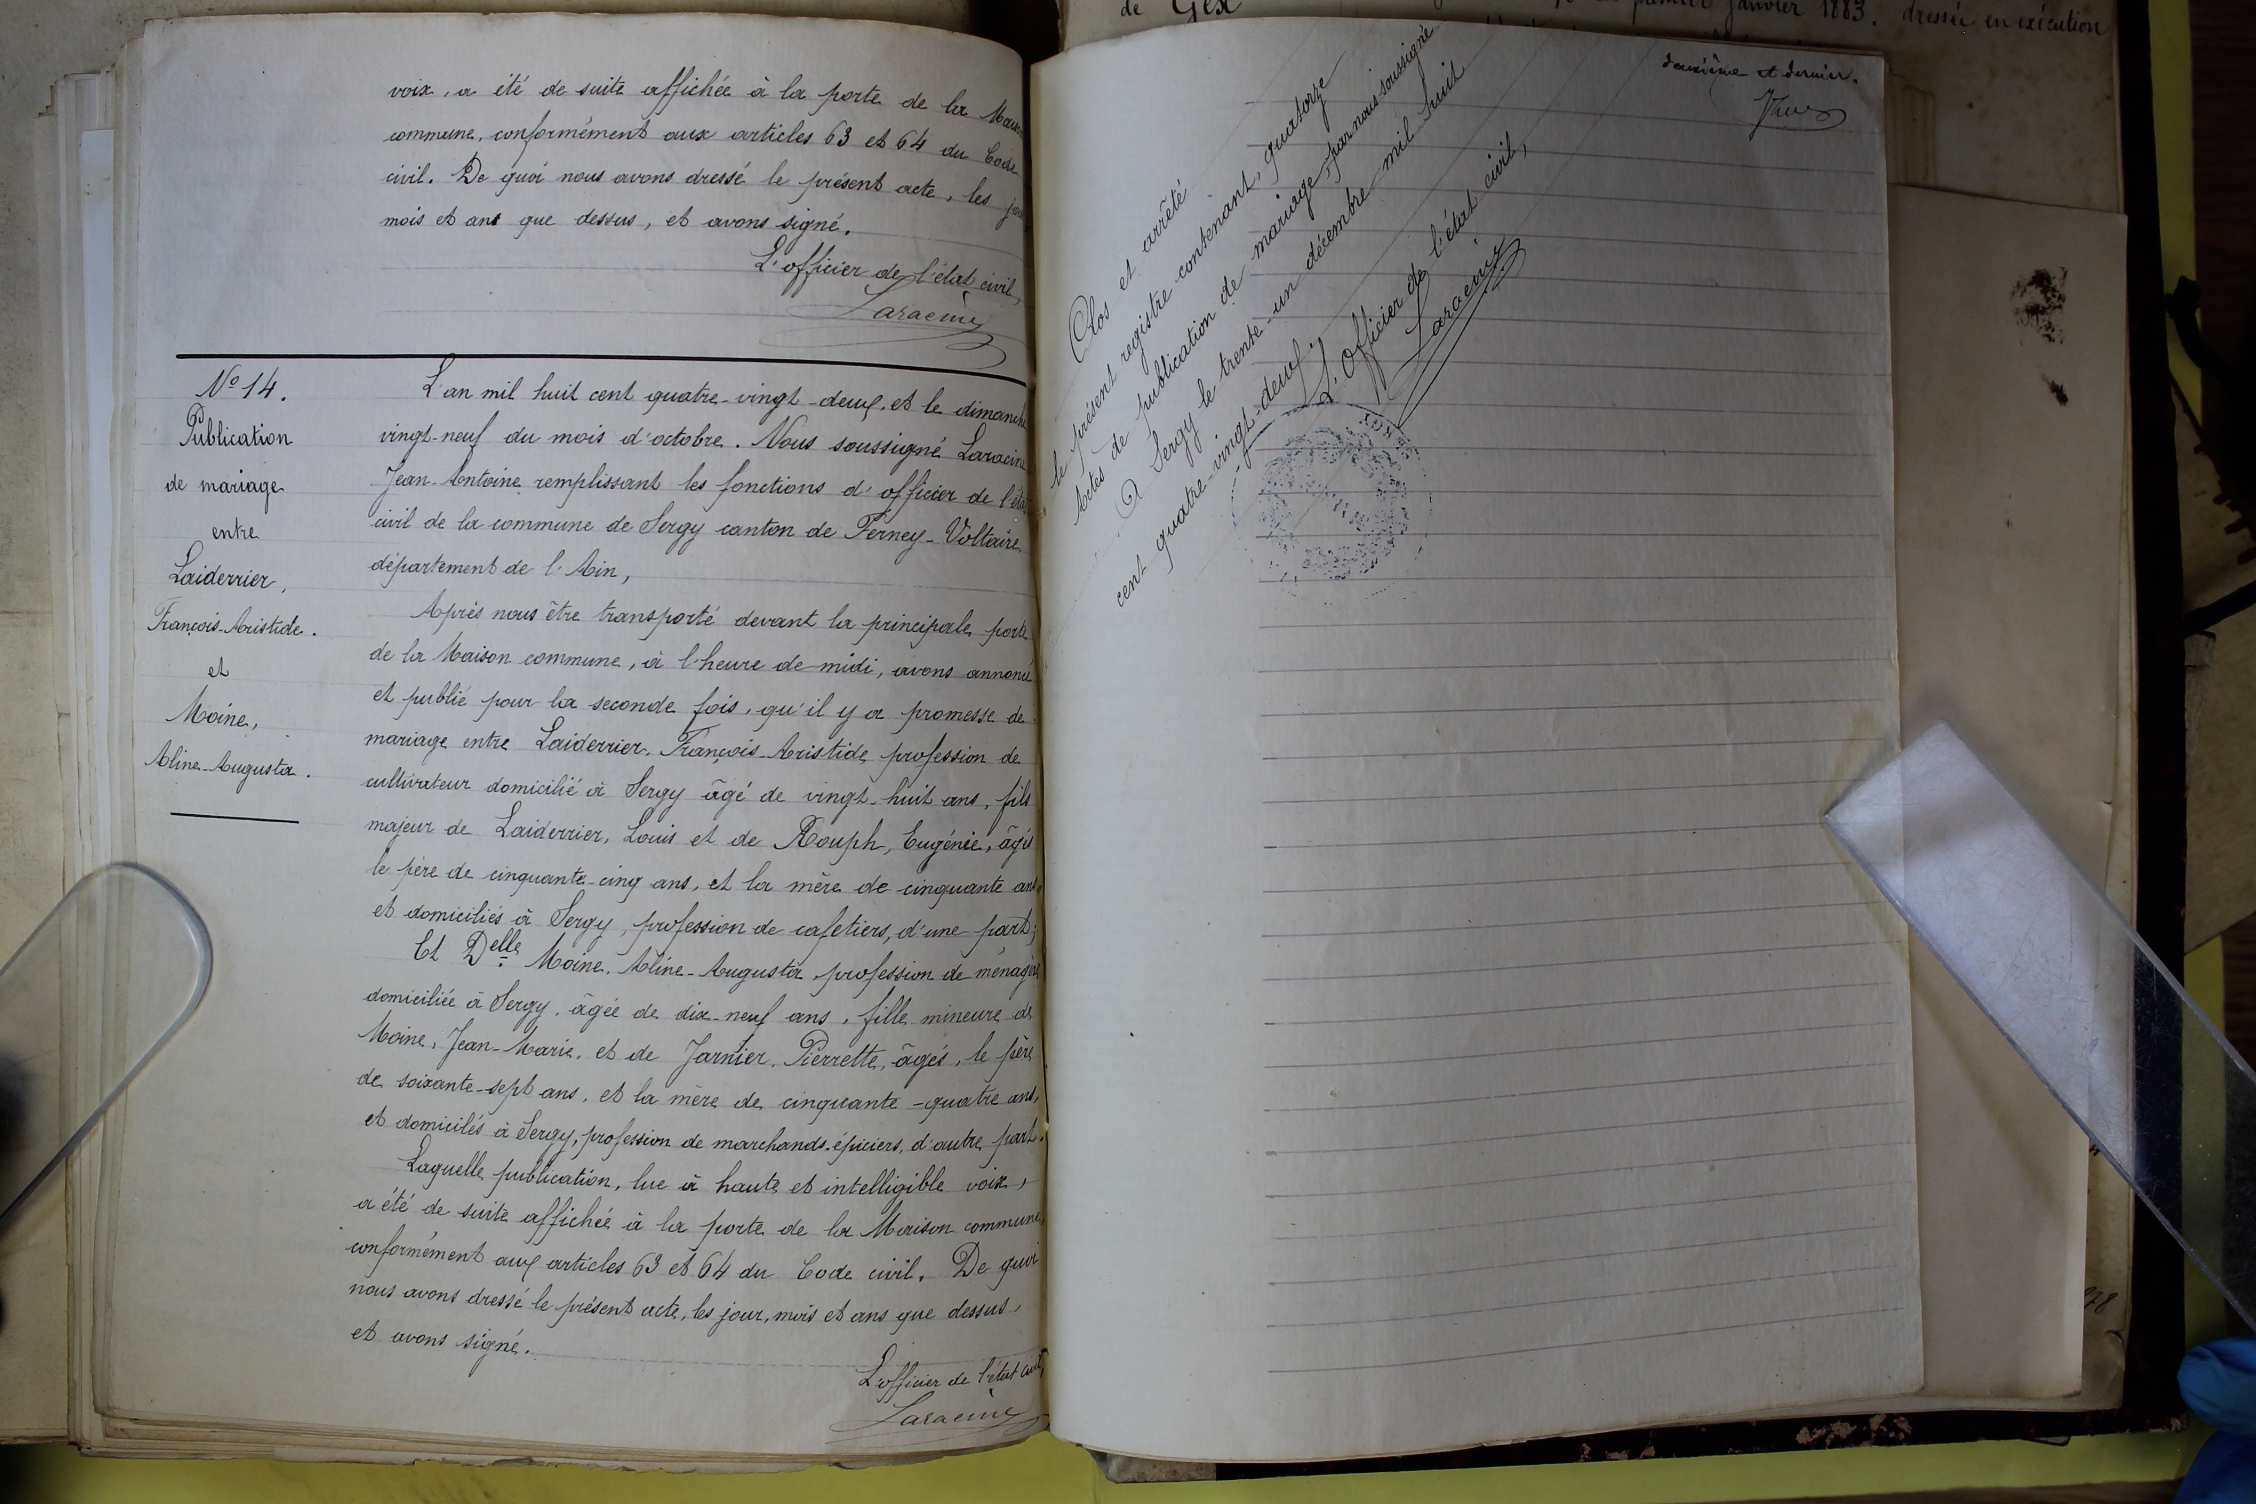 voix, a été de suite affichée à la porte de la Maison
commune, conformément aux articles 63 et 64 du Code
civil. De quoi nous avons dressé le présent acte, les jour
mois et ans que dessus, et avons signé.
L'officier de l'état civil,
Laracine
Nº 14.
Publication
de mariage
entre
Laiderrier,
François-Aristide.
et
Moine,
Aline-Augusta.
L'an mil huit cent quatre-vingt-deux, et le dimanche
vingt-neuf du mois d'octobre. Nous soussigné Laracine
Jean-Antoine remplissant les fonctions d'officier de l'état
civil de la commune de Sergy canton de Ferney-Voltaire
département de l'Ain,
Après nous être transporté devant la principale porte
de la Maison commune, à l'heure de midi, avons annoncé
et publié pour la seconde fois, qu'il y a promesse de
mariage entre Laiderrier, François-Aristide, profession de
cultivateur domicilié à Sergy âgé de vingt-huit ans, fils
majeur de Laiderrier, Louis et de Rouph, Eugénie, âgés
le père de cinquante-cinq ans, et la mère de cinquante ans
et domiciliés à Sergy, profession de cafetiers, d'une part;
Et Delle Moine, Aline-Augusta, profession de ménagère
domiciliée à Sergy, âgée de dix-neuf ans, fille mineure de
Moine, Jean-Marie, et de Jarnier, Pierrette, âgés, le père
de soixante-sept ans, et la mère de cinquante-quatre ans,
et domicilés à Sergy, profession de marchands-épiciers, d'autre part.
Laquelle publication, lue à haute et intelligible voix,
a été de suite affichée à la porte de la Maison commune,
conformément aux articles 63 et 64 du Code civil. De quoi
nous avons dressé le présent acte, les jour, mois et ans que dessus,
et avons signé.
L'officier de l'état civil,
Laracine
de Gex
premier janvier 1883. dressée en exécution
deuxième et dernier.
Clos et arrêté
le présent registre contenant, quatorze
Actes de publication de mariage, par nous soussigné
A Sergy le trente-un décembre mil huit
cent quatre-vingt-deux.
L'officier de l'état civil,
Laracine